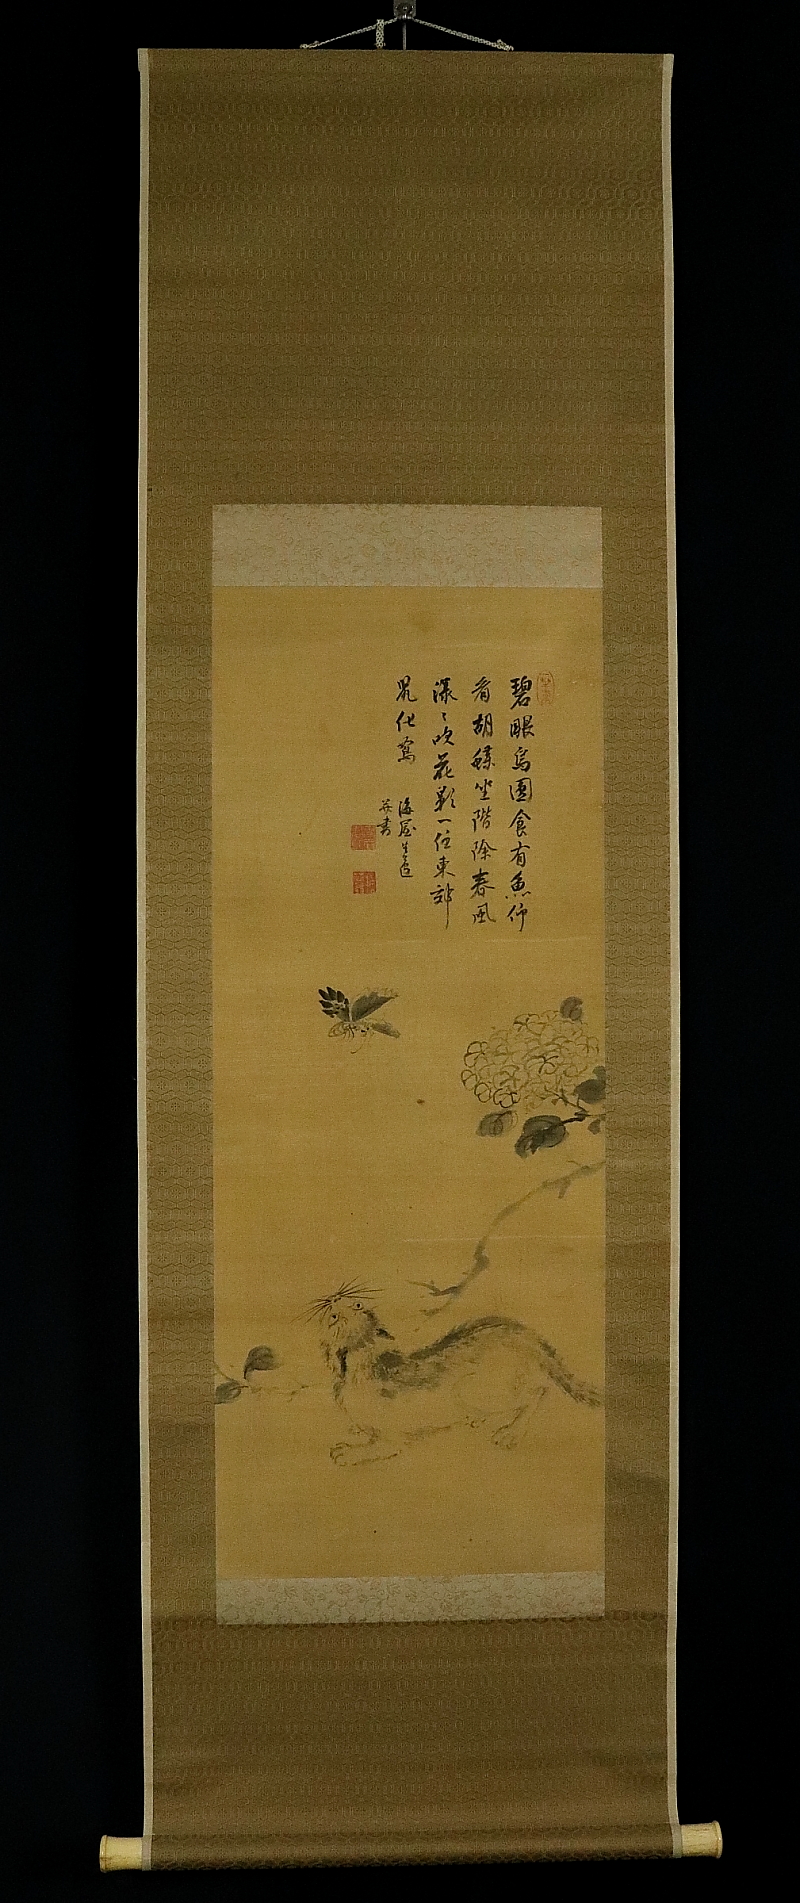 碧眼烏圓食有魚仰
看胡蝶坐階除春風
漾〻吹花影一任東郊
鼠化鴽
海屋生
并書